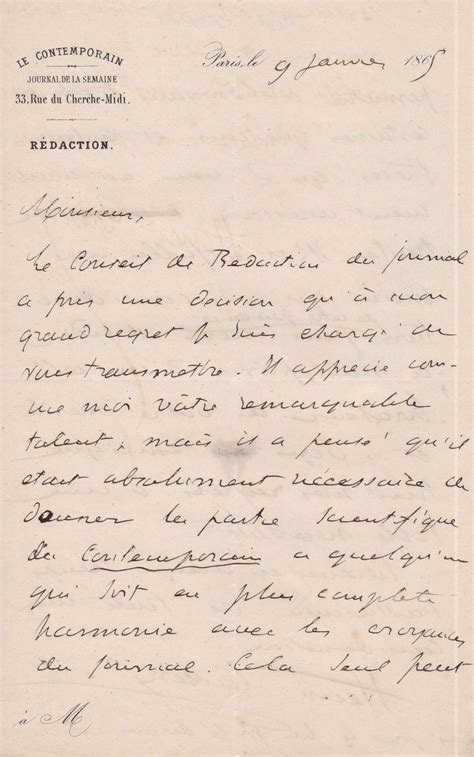 LE CONTEMPORAIN
JOURNAL DE LA SEMAINE
33. Rue du Cherche-Midi.
RÉDACTION.
Paris, le 9 Janvier 1865
Monsieur,
Le Conseil de Rédaction du journal
a pris une decision qu'à mon
grand regret je suis chargé de
vous transmettre. Il apprecie com-
me moi vôtre remarquable
talent, mais il a pensé qu'il
etait absolument nécessaire de
donner la partie scientifique
du Contemporain a quelqu'un
qui soit en plus complete
harmonie avec les croyances
du journal. Cela seul peut
à M